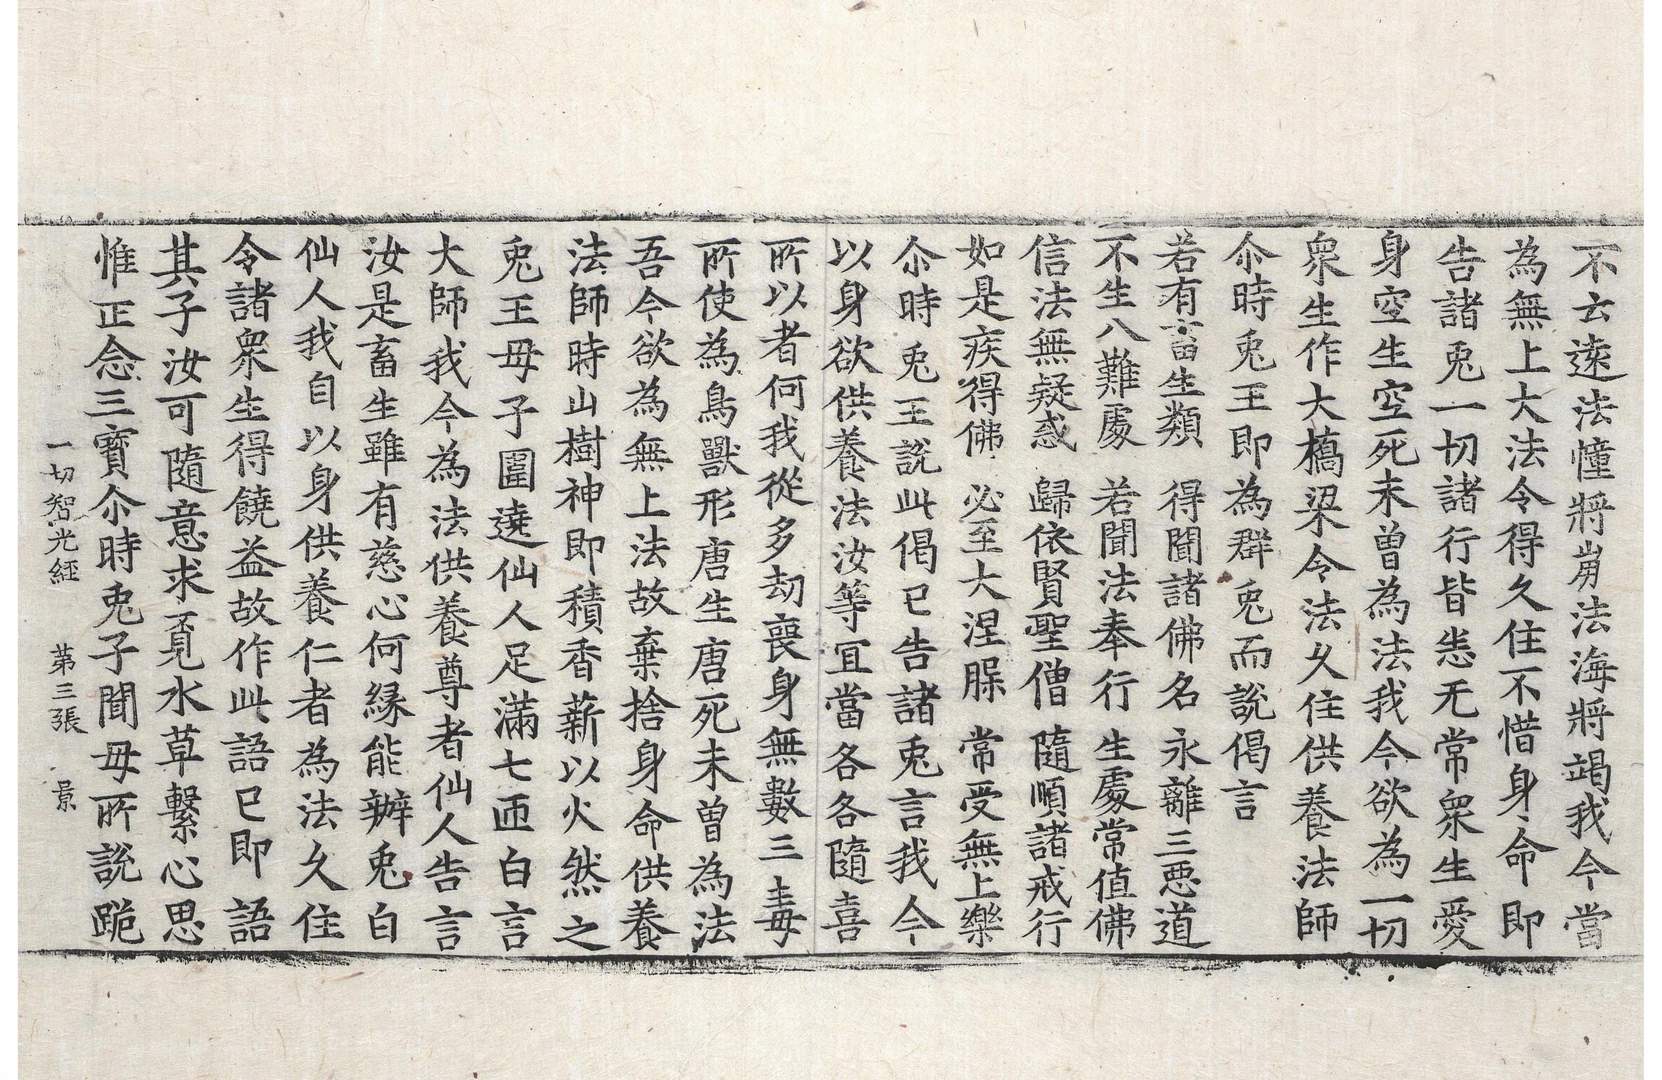 不厺遠法憧將崩法海將竭我今當
為無上大法令得久住不惜身命即
告諸兔一切諸行皆悉无常衆生愛
身空生空死未曽為法我今欲為一切
衆生作大橋梁令法久住供養法師
尒時兔王即為群兔而說偈言
若有畜生類 得聞諸佛名 永離三惡道
不生八難處 若聞法奉行 生處常值佛
信法無疑惑 歸依賢聖僧 隨順諸戒行
如是疾得佛 必至大涅槃 常受無上樂
尒時兔王說此偈已告諸兔言我今
以身欲供養法汝等冝當各各隨喜
所以者何我從多劫喪身無數三毒
所使為鳥獸形唐生唐死未曽為法
吾今欲為無上法故棄捨身命供養
法師時山樹神即積香薪以火然之
兔王母子圍遶仙人足滿七匝白言
大師我今為法供養尊者仙人告言
汝是畜生雖有慈心何緣能辦兔白
仙人我自以身供養仁者為法久住
令諸衆生得饒益故作此語已即語
其子汝可隨意求覓水草繫心思
惟正念三寶尒時兔子聞母所說跪
一切智光經 第三張 景